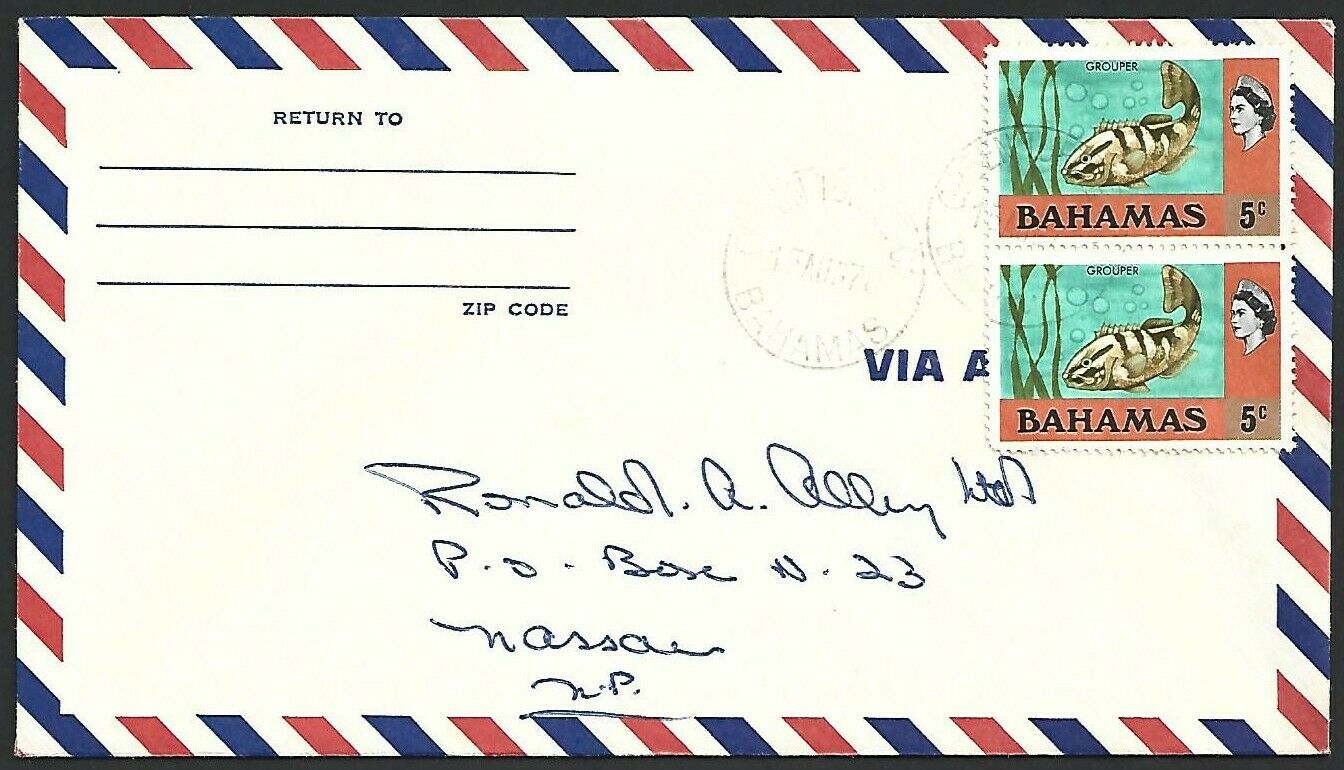 RETURN TO
ZIP CODE
GROUPER
BAHAMAS 5c
GROUPER
BAHAMAS 5c
BAHAMAS
VIA A
Ronald. A. Alley Ltd
P.O. Box N. 23
Nassau
N.P.